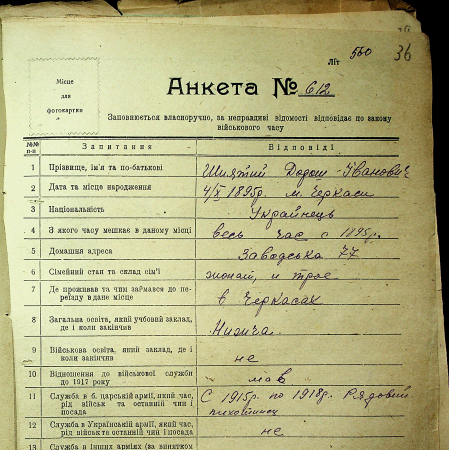 36
Літ 560
Місце
для
фотокартки
Анкета № 612
Заповнюється власноручно, за неправдиві відомості відповідає по закону
військового часу
№№ п-п Запитання Відповіді
1 Прізвище, ім'я та по-батькові Іванович
2 Дата та місце народження 4/X 1895р. м. Черкаси
3 Національність Українець
4 З якого часу мешкає в даному місці весь час с 1895р.
5 Домашня адреса Заводська 77
6 Сімейний стан та склад сім'ї жонат, и трое
7 Де проживав та чим займався до пе-
реїзду в дане місце в Черкасах
8 Загальна освіта, який учбовий заклад,
де і коли закінчив Низча.
9 Військова освіта, який заклад, де і
коли закінчив не
10 Відношення до військової служби
до 1917 року мав
11 Служба в б. царській армії, який час,
рід військ та останній чин і
посада С 1915р. по 1918р. Рядовий
12 Служба в Українській армії, який час,
рід військ та останній чин і посада не
13 Служба в інших арміях (за винятком